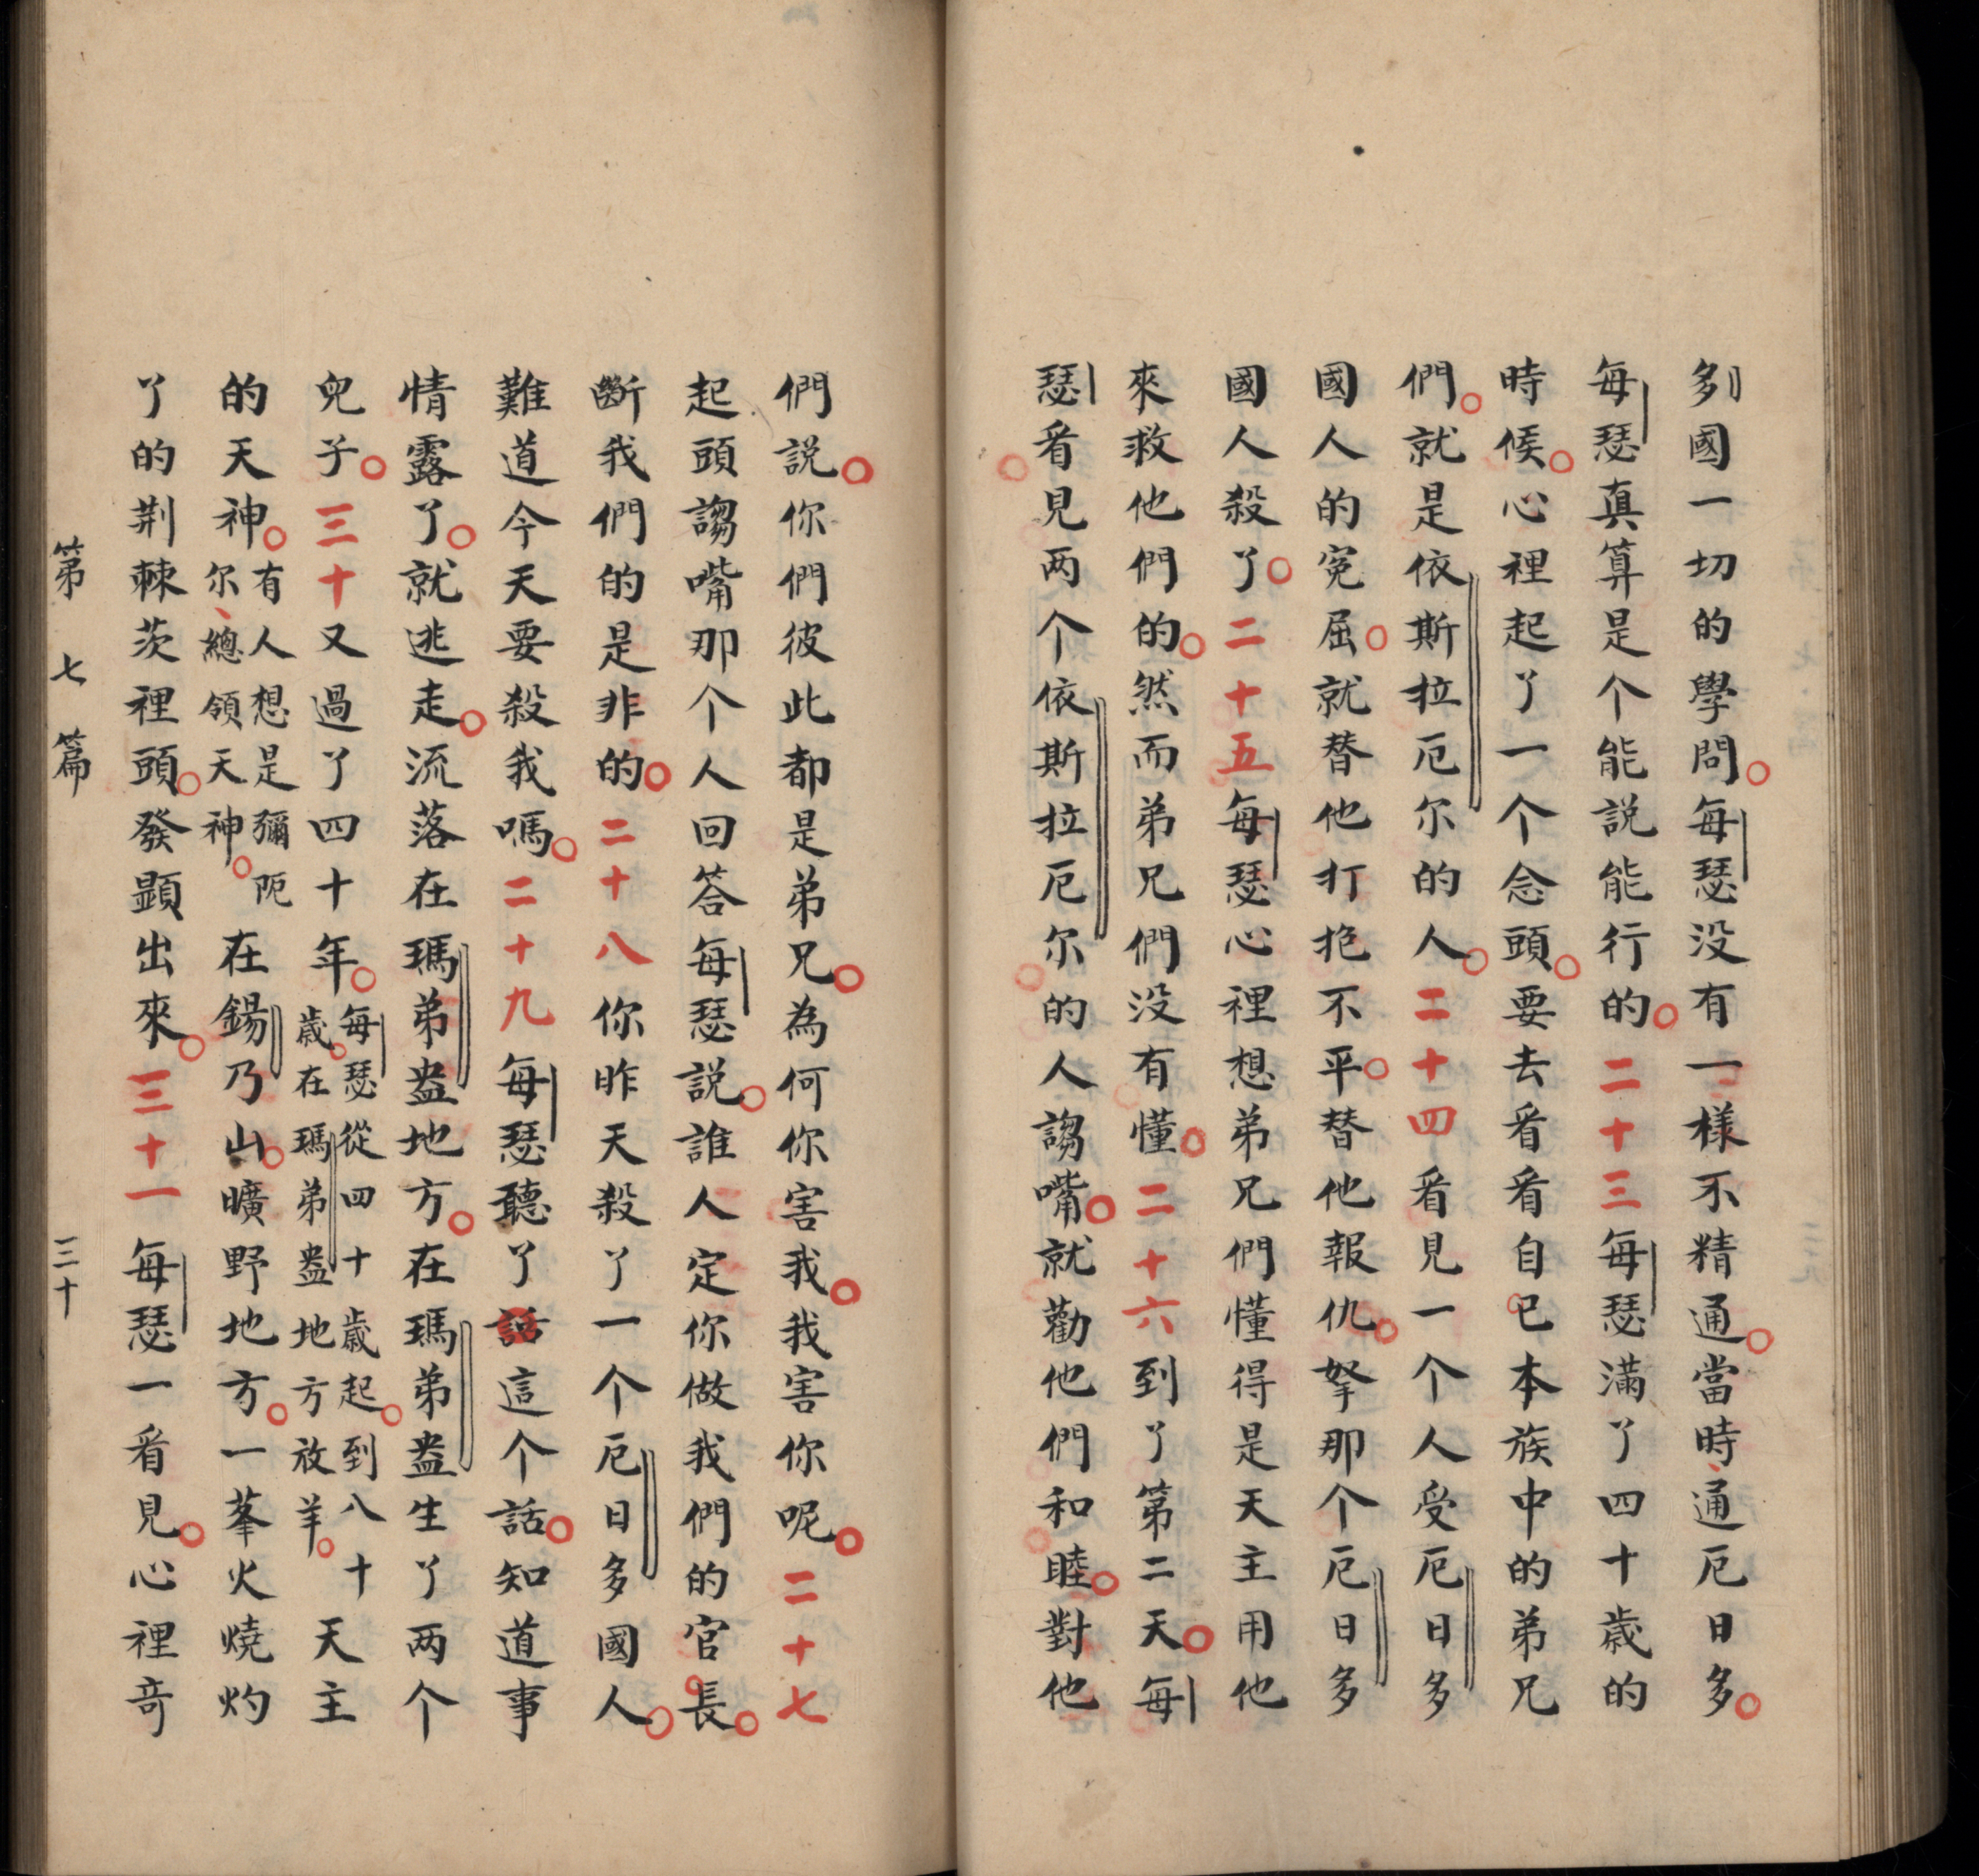 多國一切的學問。每瑟没有一樣不精通。當時、通厄日多。
每瑟真算是个能説能行的。二十三每瑟滿了四十歳的
時候。心裡起了一个念頭。要去看看自己本族中的弟兄
們。就是依斯拉厄尔的人。二十四看見一个人受厄日多
國人的寃屈。就替他打抱不平。替他報仇。拏那个厄日多
國人殺了。二十五每瑟心裡想弟兄們懂得是天主用他
來救他們的。然而弟兄們没有懂。二十六到了第二天。每
瑟看見两个依斯拉厄尔的人謅嘴。就勸他們和睦。對他
們説。你們彼此都是弟兄。為何你害我。我害你呢。二十七
起頭謅嘴那个人回答每瑟説。誰人定你做我們的官長。
斷我們的是非的。二十八你昨天殺了一个厄日多國人。
難道今天要殺我嗎。二十九每瑟聽了話這个話。知道事
情露了。就逃走。流落在瑪弟盎地方。在瑪弟盎生了两个
兒子。三十又過了四十年。每瑟從四十歳起。到八十歳。在瑪弟盎地方放羊。天主
的天神。有人想是彌阨尔、總領天神。在鍚乃山。曠野地方。一峯火燒灼
了的荆棘茨裡頭。發顕出來。三十一每瑟一看見。心裡竒
第七篇 三十